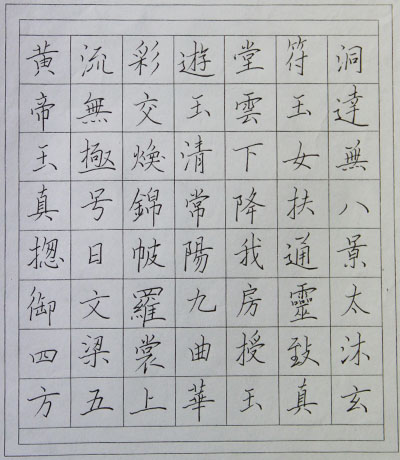 黃帝玉真揔御四方
流無極号日文梁五
彩交煥錦帔羅裳上
遊玉清常陽九曲華
堂雲下降我房授玉
符玉女扶通靈致真
洞達無八景太沐玄